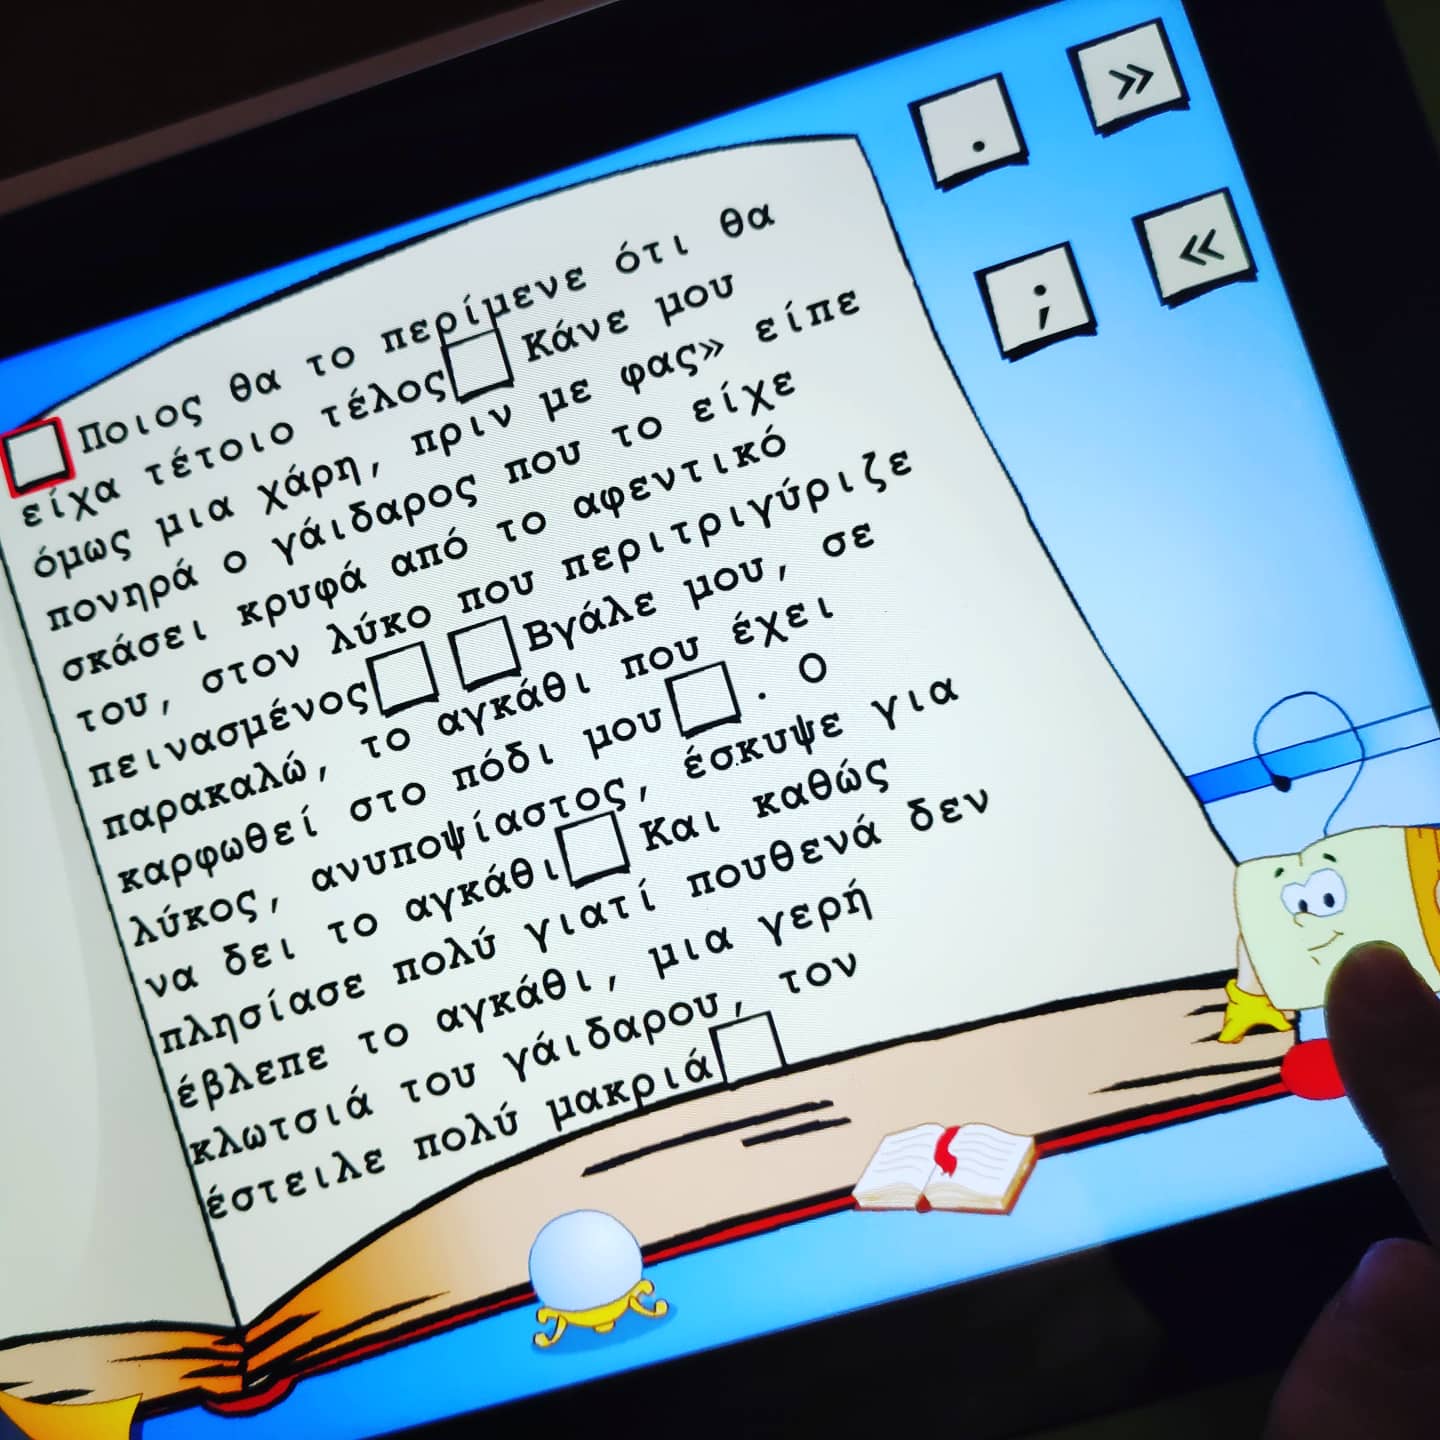 Ποιος θα το περίμενε ότι θα
είχα τέτοιο τέλος Κάνε μου
όμως μια χάρη, πριν με φας» είπε
πονηρά ο γάιδαρος που το είχε
σκάσει κρυφά από το αφεντικό
του, στον λύκο που περιτριγύριζε
πεινασμένος Βγάλε μου, σε
παρακαλώ, το αγκάθι που έχει
καρφωθεί στο πόδι μου . Ο
λύκος, ανυποψίαστος, έσκυψε για
να δει το αγκάθι Και καθώς
πλησίασε πολύ γιατί πουθενά δεν
έβλεπε το αγκάθι, μια γερή
κλωτσιά του γάιδαρου, τον
έστειλε πολύ μακριά
. »
; «